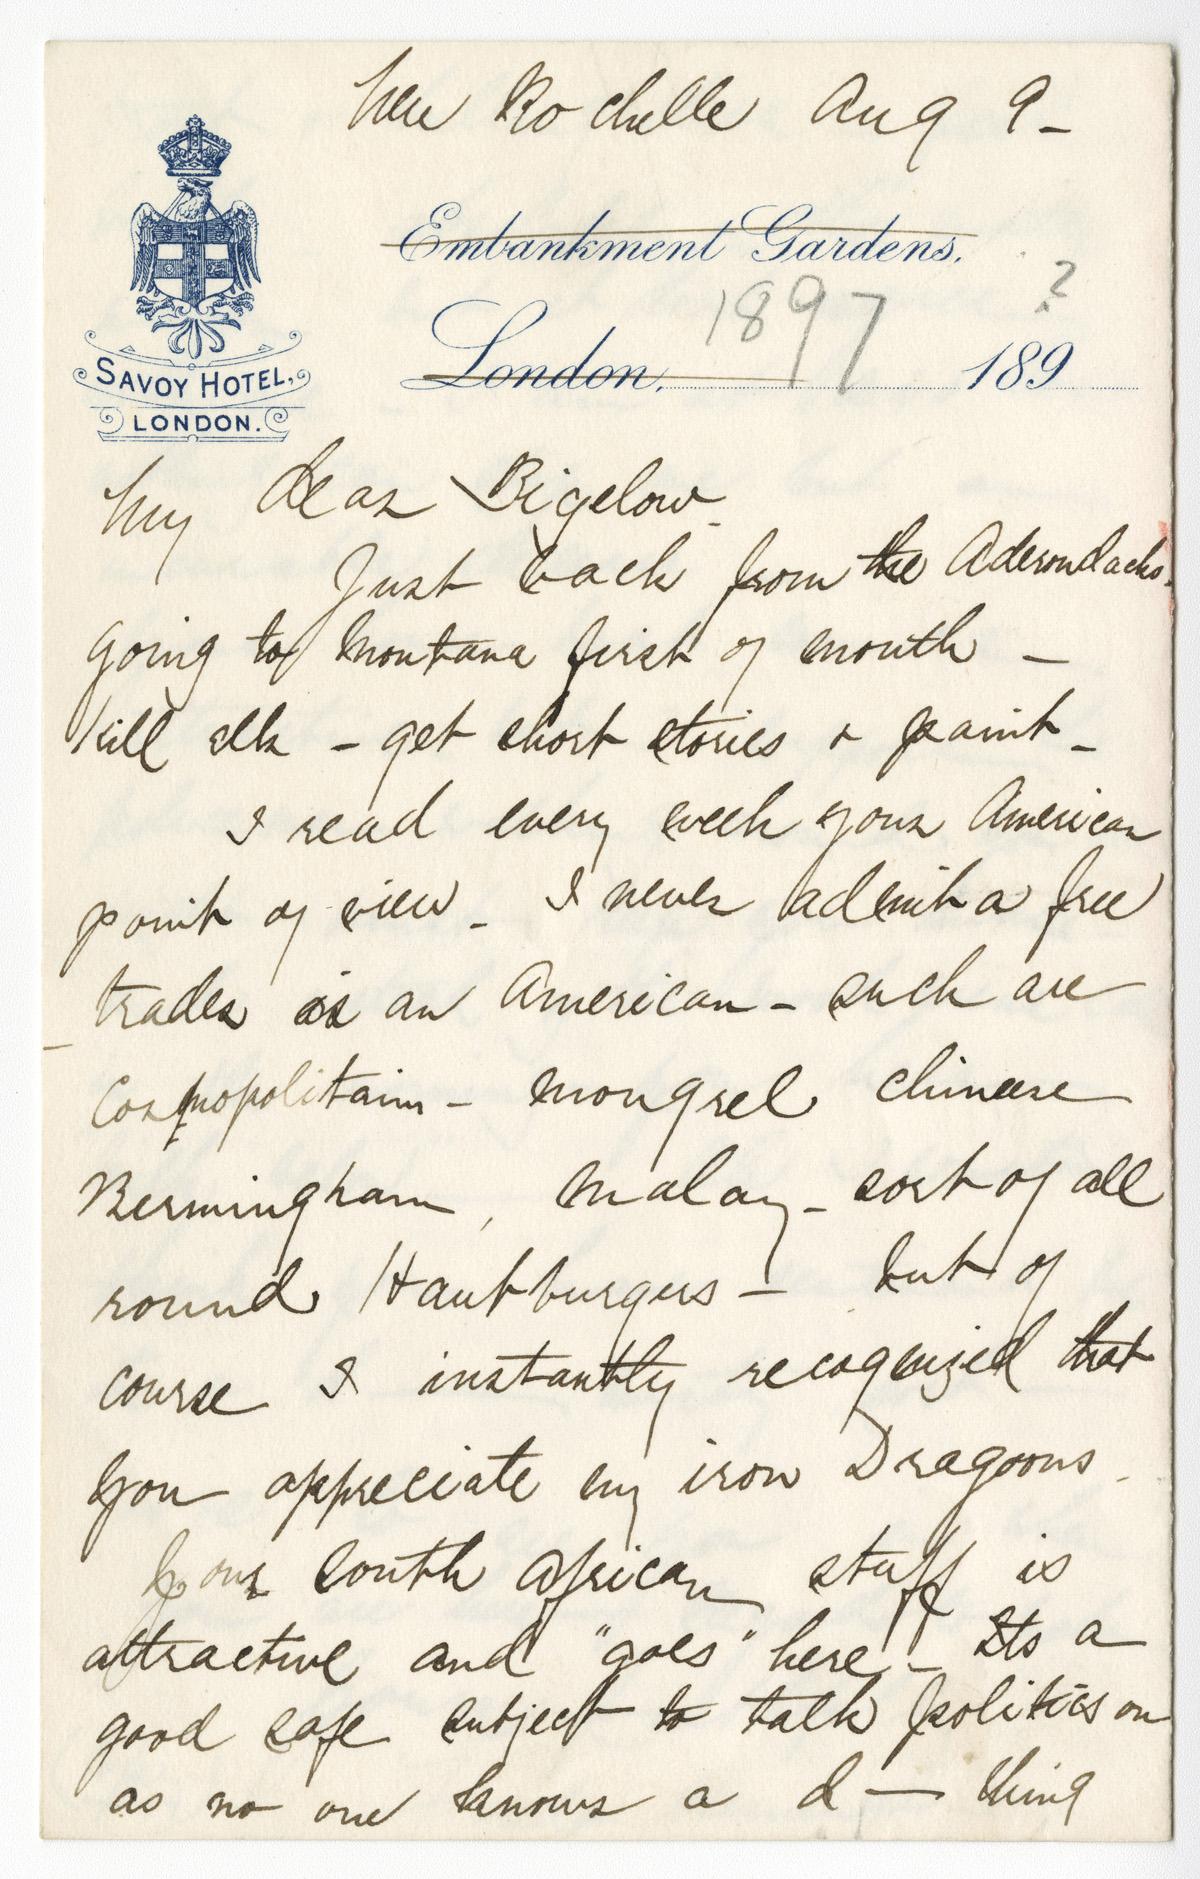 New Rochelle Aug 9 -
Embankment Gardens.
1897 ?
London. 189
SAVOY HOTEL,
LONDON.
My dear Bigelow.
Just back from the Aderondacks.
going to Montana first of month -
kill elk - get short stories & paint -
I read every week your American
point of view - I never admit a free
trader is an American - such are
Cosmopolitain - mongrel chineese
Bermingham, Malay - sort of all
round - but of
course I instantly recognized that
you appreciate my iron Dragoons.
Your South African stuff is
attractive and "goes" here - Its a
good safe subject to talk politics on
as no one knows a d— thing